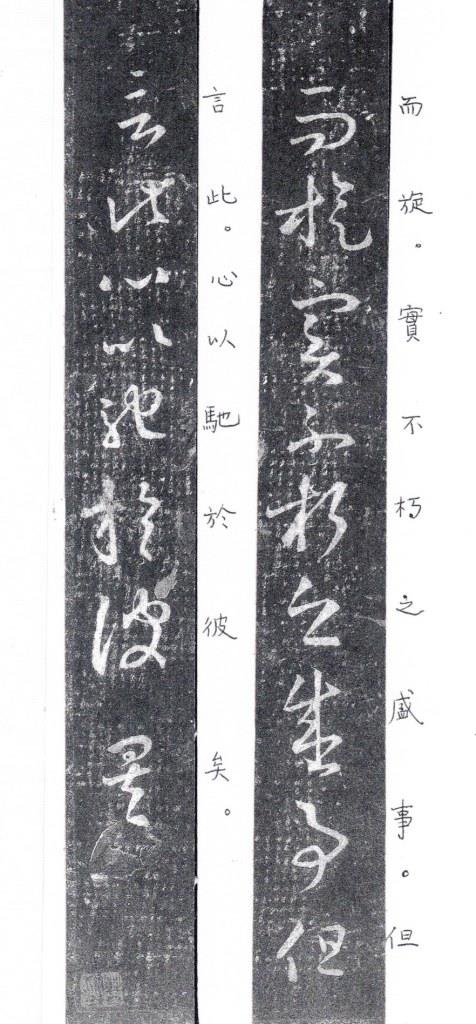 而旋實不朽之盛事但
而旋。實不朽之盛事。但
言此心以馳於彼矣
言此。心以馳於彼矣。